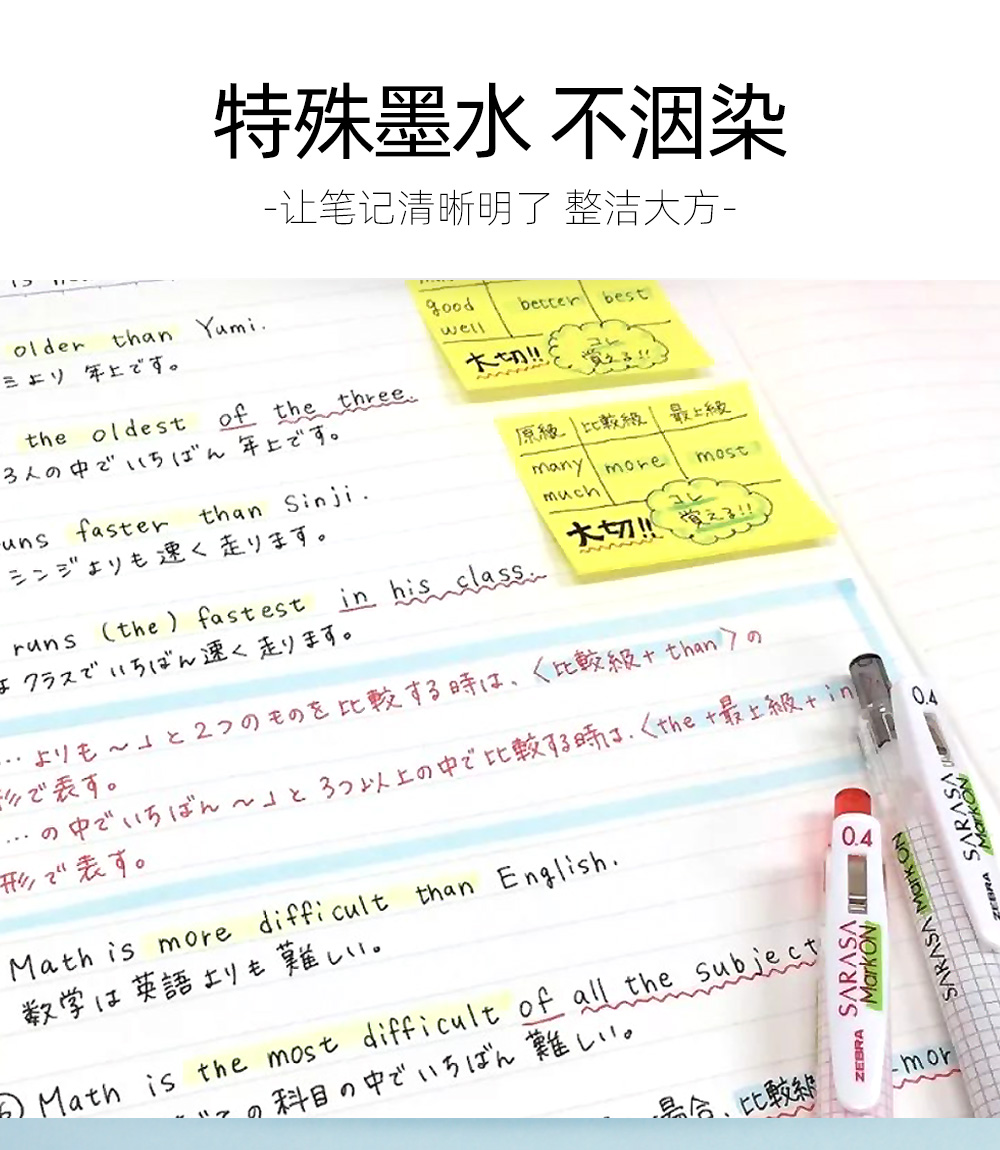 特殊墨水 不洇染
-让笔记清晰明了 整洁大方-
good better best
well
大切!! コレ
覚える!!
older than Yumi.
ミより 年上です。
the oldest of the three.
3人の中でいちばん 年上です。
原級 比較級 最上級
many more most
much
コレ
大切!! 覚える!!
uns faster than Sinji.
シンジよりも速く走ります。
runs (the) fastest in his class.
は クラスでいちばん速く走ります。
…よりも~」と2つのものを比較する時は、〈比較級+than〉の
形で表す。
…の中でいちばん~」と 3つ以上の中で比較する時は、〈the+最上級+in
形で表す。
Math is more difficult than English.
数学は英語よりも難しい。
Math is the most difficult of all the subject
の科目の中でいちばん 難しい。
場合、比較級
mor
0.4
SARASA MarkON
ZEBRA
0.4
SARASA MarkON
ZEBRA
SARASA MarkON